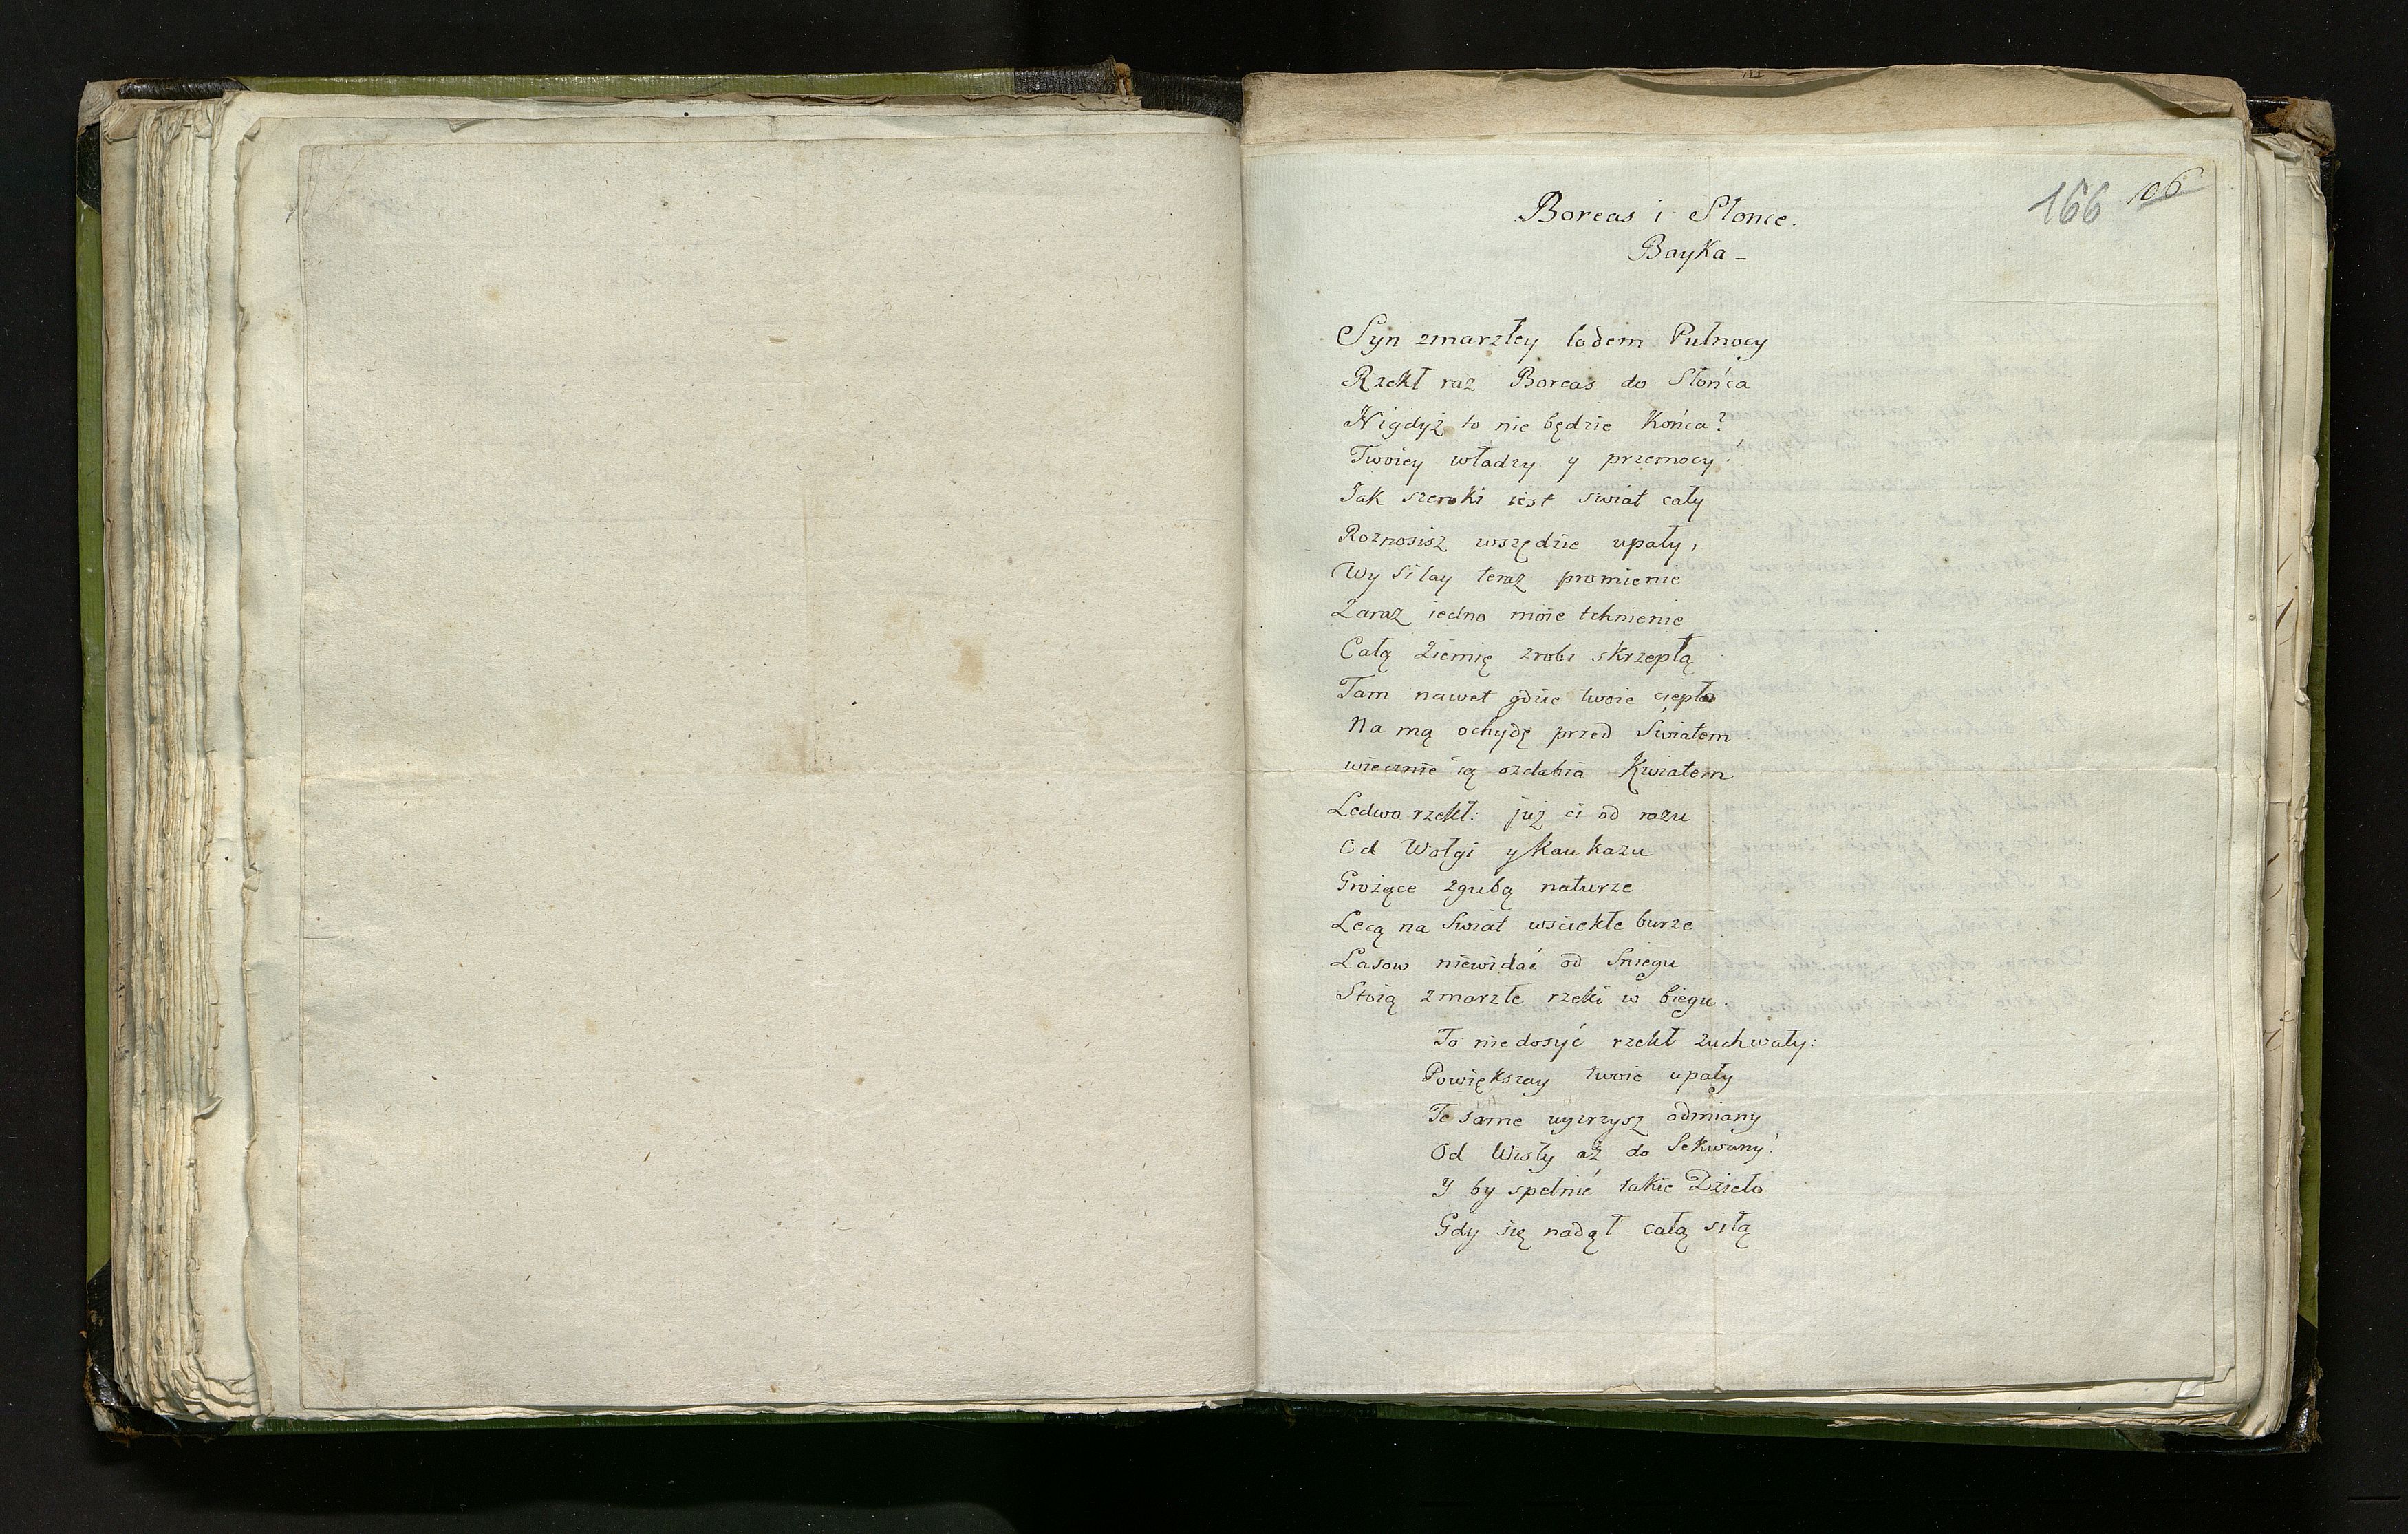 166 106
Boreas i Słonce.
Bayka -
Syn zmarzłey lodem Pułnocy
Rzekł raz Boreas do Słońca
Nigdyż to nie będzie Końca?
Twoiey władzy y przemocy!
Jak szeroki iest swiat cały
Roznosisz wszędzie upały,
Wysilay teraz promienie
Zaraz iedno moie tchnienie
Całą Ziemię zrobi skrzepłą
Tam nawet gdzie twoie ciepło
Na mą ochydę przed Światem
wiecznie ią ozdabia Kwiatem
Ledwo rzekł: już ci od razu
Od Wołgi y Kaukazu
Grożące zgubą naturze
Lecą na Swiat wściekłe burze
Lasow niewidać od Sniegu
Stoią zmarzłe rzeki w biegu.
To nie dosyć rzekł zuchwały:
Powiększay twoie upały
Te same uyzrzysz odmiany
Od Wisły aż do Sekwany!
Y by spełnić takie Dzieło
Gdy się nadął całą siłą